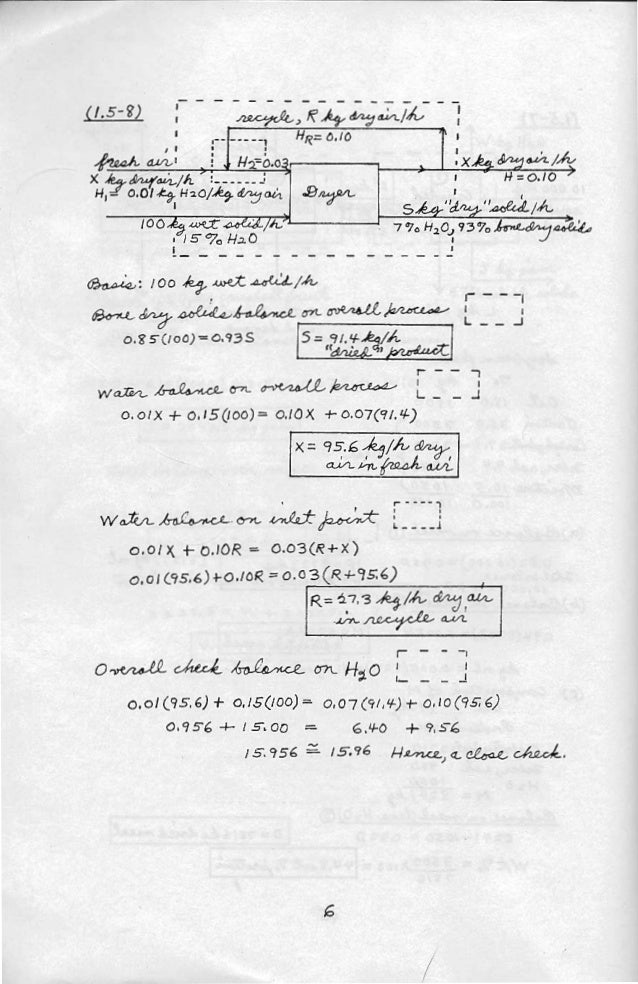 (1.5-8)
recycle, R kg dry air/h
HR = 0.10
fresh air
H2=0.03
X kg dry air/h
H1= 0.01 kg H2O/kg dry air
Dryer
X kg dry air/h
H = 0.10
100 kg wet solid/h
15% H2O
S kg "dry" solid/h
7% H2O, 93% bone dry solids
Basis: 100 kg wet solid/h
Bone dry solids balance on overall process
0.85(100) = 0.93S
S = 91.4 kg/h
"dried" product
Water balance on overall process
0.01X + 0.15(100) = 0.10X + 0.07(91.4)
X = 95.6 kg/h dry
air in fresh air
Water balance on inlet point
0.01X + 0.10R = 0.03(R+X)
0.01(95.6)+0.10R = 0.03(R+95.6)
R = 27.3 kg/h dry air
in recycle air
Overall check balance on H2O
0.01(95.6) + 0.15(100) = 0.07(91.4) + 0.10(95.6)
0.956 + 15.00 = 6.40 + 9.56
15.956 ≅ 15.96 Hence, a close check.
6